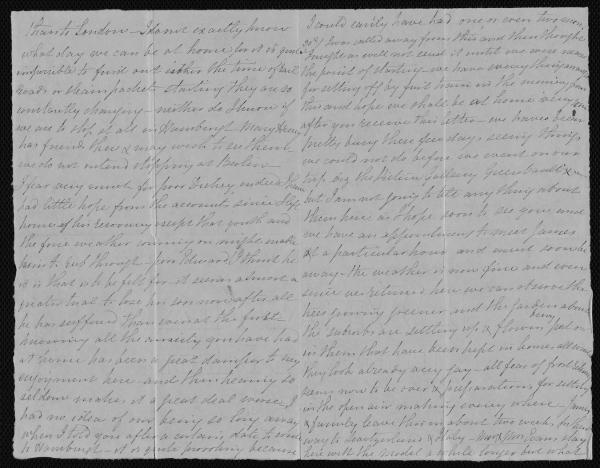 than to London – I do not exactly know
what day we can be at home for it is quite
impossible to find out either the time of rail
roads or steam packet starting they are so
constantly changing – neither do I know if
we are to stop at all in Hamburgh Mary
has friends there & may wish to see them
we do not intend stopping at Berlin
I fear very much for poor indeed I have
had little hope from the accounts since
home of his recovery except that youth and
the fine weather coming on might make
him get through – poor Edward I think he
it is that will be felt for it seems almost a
greater trial to lose his son now after all
he has suffered than even at the first
hearing all the anxiety you have had
at home has been a great damper to my
enjoyment here and then hearing so
seldom makes it a great deal worse, I
had no idea of our being so long away
when I told you after a certain date to come
to Hamburgh – it is quite provoking because
I could easily have had one or even two
I was called away from this and then thought
I might as well not send it until we were near
the point of starting – we have every thing
for setting off by first train in the morning from
this and hope we shall be at home very soon
after you receive this letter – we have been
pretty busy these few days seeing things
we could not do before we went on our
trip, eg the Picture Gallery green vault &
but I am not going to tell any thing about
them here as I hope soon to see you and
we have an appointment to meet James
at a particular hour and must soon be
away – the weather is now fine and even
since we returned here we can observe the
trees growing greener and the gardens about
the suburbs are setting up & flowers put out
in them that have been kept in home all winter
they look already very gay – all fear of frost
seems now to be over & preparations for sitting
in the open air making every where – James
& family leave this in about two weeks, for their
way to Switzerland & Italy – Mr & Mrs may stay
here with the a while longer but what